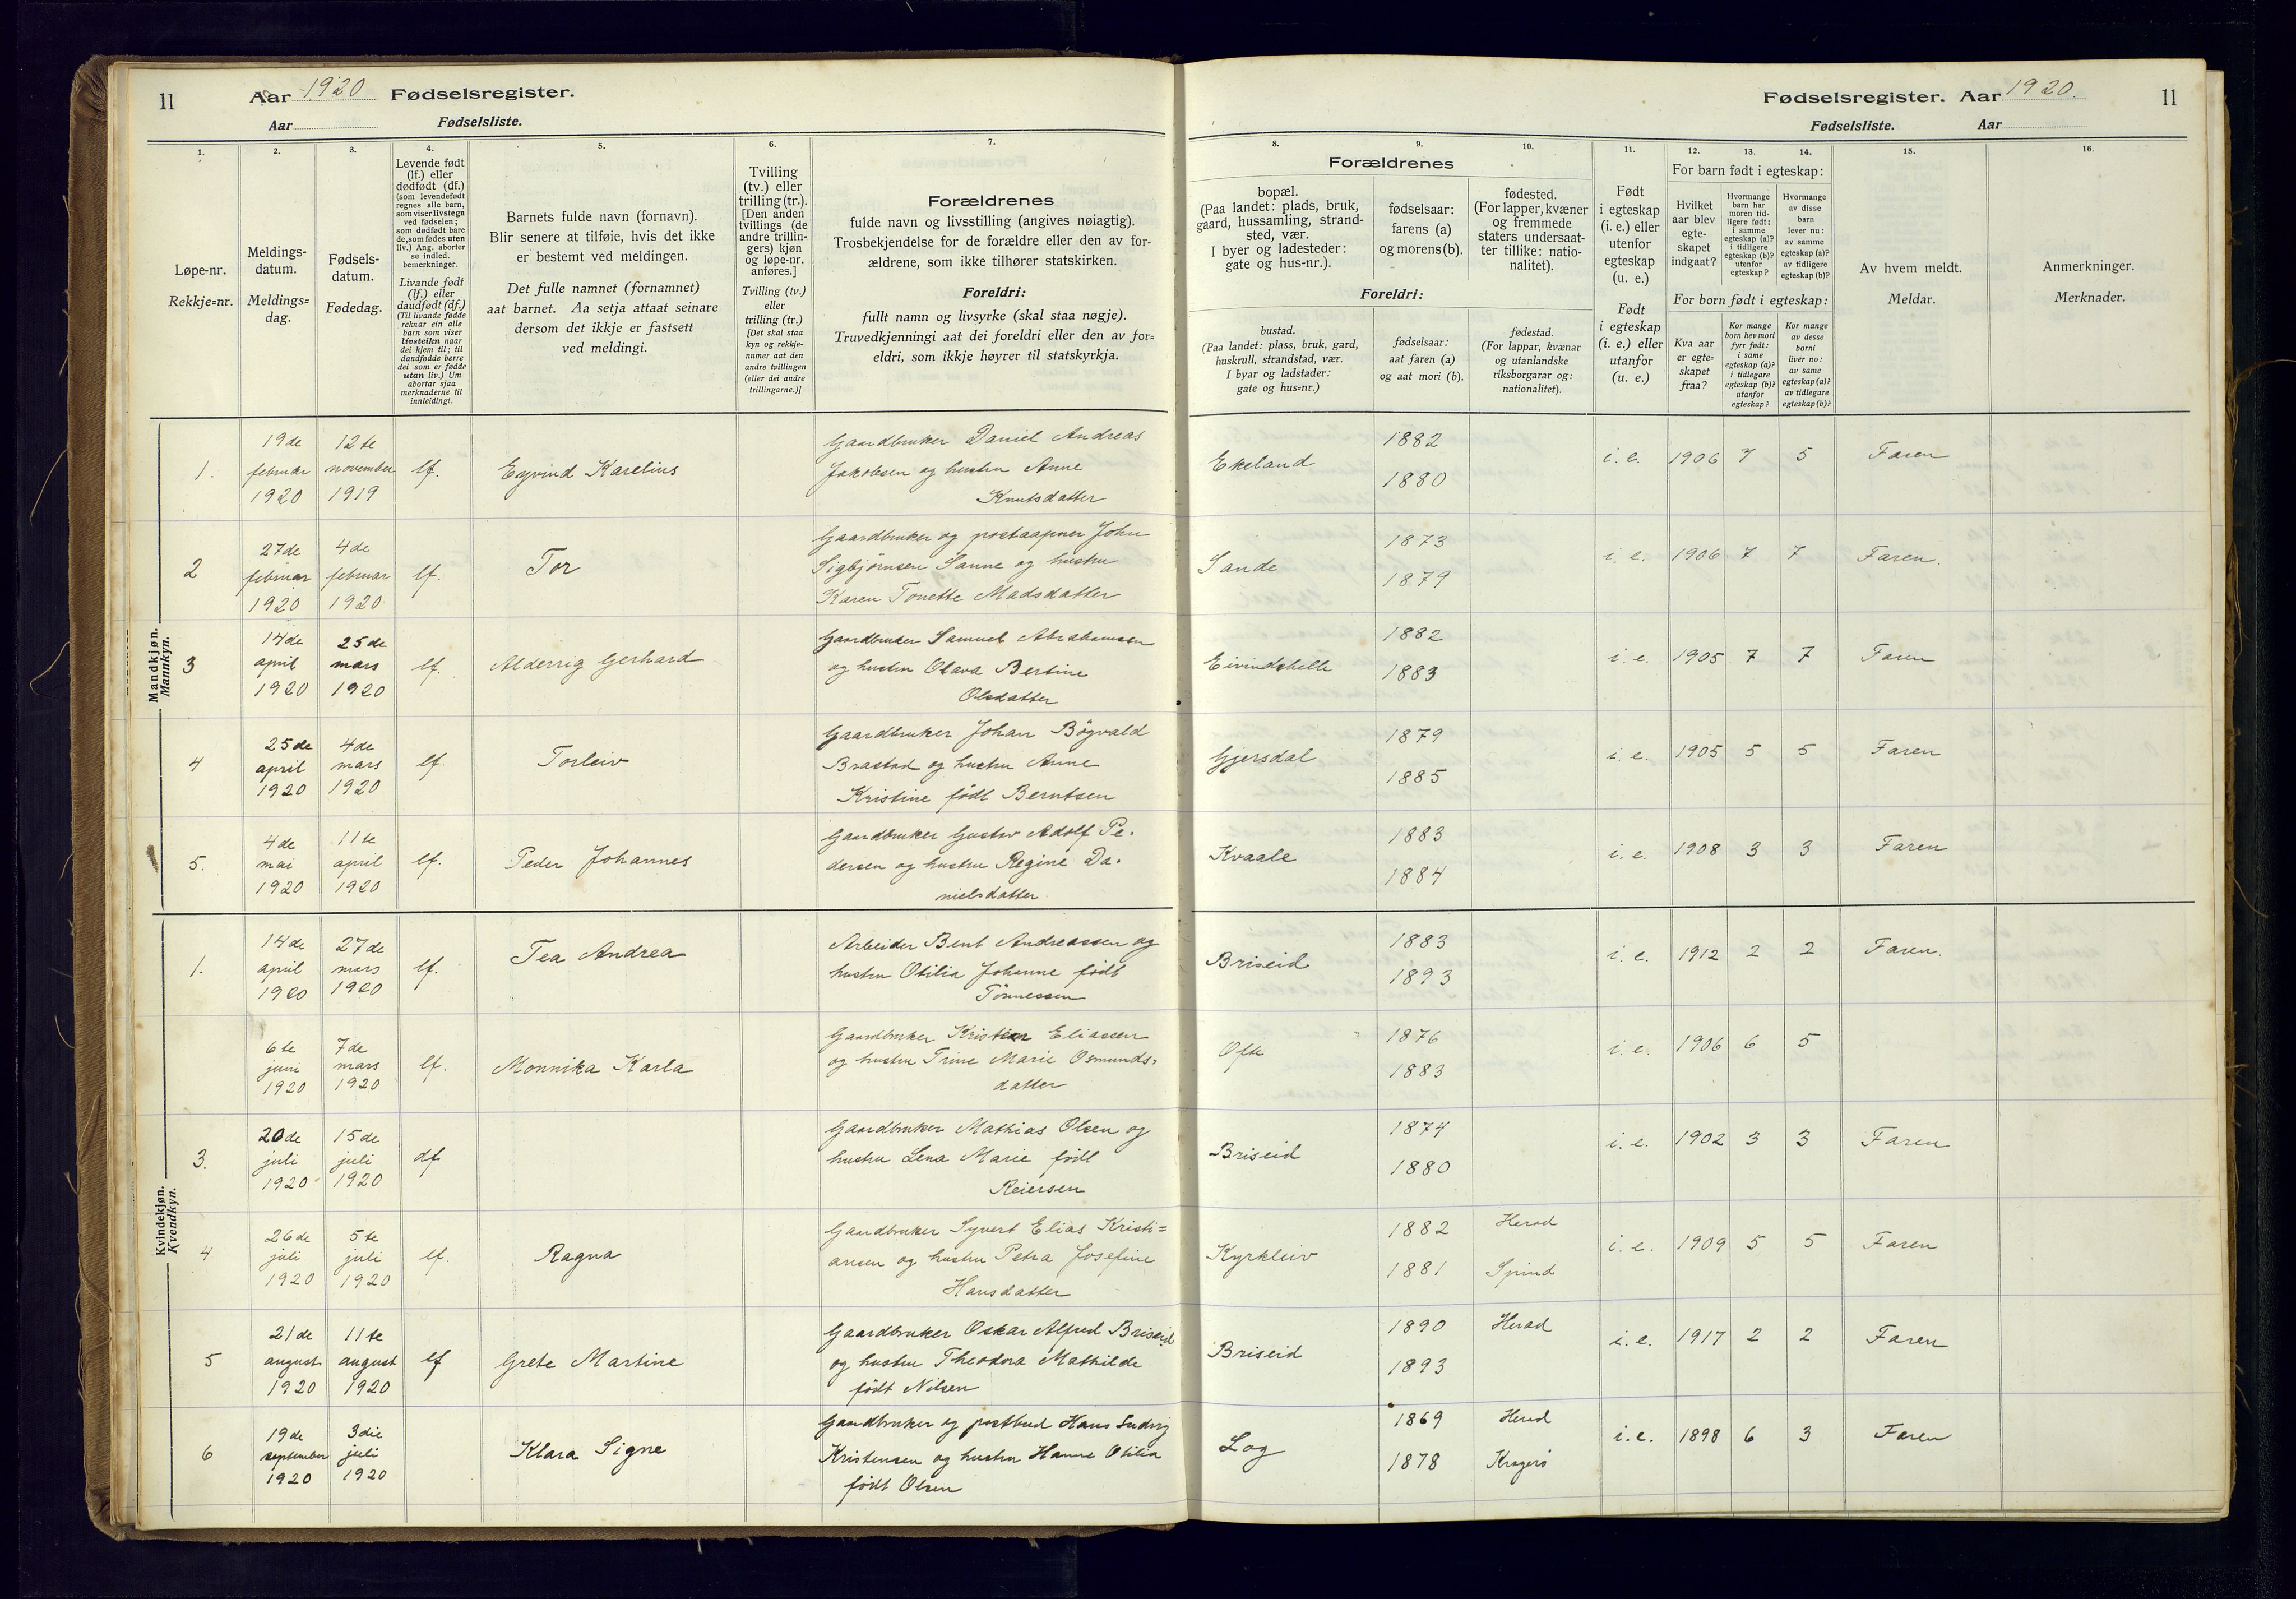 11
Aar 1920 Fødselsregister.
Aar Fødselsliste.
Fødselsregister. Aar 1920.
11
Fødselsliste. Aar
1.
Løpe-nr.
Rekkje=nr.
2.
Meldings-
datum.
Meldings=
dag.
3.
Fødsels-
datum.
Fødedag.
4.
Levende født
(lf.) eller
dødfødt (df.)
(som levendefødt
regnes alle barn,
som viser livstegn
ved fødselen;
som dødfødt bare
de, som fødes uten
liv.) Ang. aborter
se indled.
bemerkninger.
Livande født
(lf.) eller
daudfødt (df.)
(Til livande fødde
reknar ein alle
barn som viser
livsteikn naar
dei kjem til; til
daudfødde berre
dei som er fødde
utan liv.) Um
abortar sjaa
merknaderne til
innleidingi.
5.
Barnets fulde navn (fornavn).
Blir senere at tilføie, hvis det ikke
er bestemt ved meldingen.
Det fulle namnet (fornamnet)
aat barnet. Aa setja attaat seinare
dersom det ikkje er fastsett
ved meldingi.
6.
Tvilling
(tv.) eller
trilling (tr.).
[Den anden
tvillings (de
andre trillin-
gers) kjøn
og løpe-nr.
anføres.]
Tvilling (tv.)
eller
trilling (tr.)
[Det skal staa
kyn og rekkje-
numer aat den
andre tvillingen
(eller dei andre
trillingarne.)]
7.
Forældrenes
fulde navn og livsstilling (angives nøiagtig).
Trosbekjendelse for de forældre eller den av for-
ældrene, som ikke tilhører statskirken.
Foreldri:
fullt namn og livsyrke (skal staa nøgje).
Truvedkjenningi aat dei foreldri eller den av for=
eldri, som ikkje høyrer til statskyrkja.
Forældrenes
8.
bopæl.
(Paa landet: plads, bruk,
gaard, hussamling, strand-
sted, vær.
I byer og ladesteder:
gate og hus-nr.).
9.
fødselsaar:
farens (a)
og morens (b).
10.
fødested.
(For lapper, kvæner
og fremmede
staters undersaat-
ter tillike: natio-
nalitet).
Foreldri:
bustad.
(Paa landet: plass, bruk, gard,
huskrull, strandstad, vær.
I byar og ladstader:
gate og hus=nr.)
fødselsaar:
aat faren (a)
og aat mori (b).
fødestad.
(For lappar, kvænar
og utanlandske
riksborgarar og:
nationalitet).
11.
Født
i egteskap
(i. e.) eller
utenfor
egteskap
(u. e.)
Født
i egteskap
(i. e.) eller
utanfor
(u. e.)
12. 13. 14.
For barn født i egteskap:
Hvilket
aar blev
egte-
skapet
indgaat?
Hvormange
barn har
moren tid-
ligere født:
i samme
egteskap (a)?
i tidligere
egteskap (b)?
utenfor
egteskap?
Hvormange
av disse
barn
lever nu:
av samme
egteskap (a)?
av tidligere
egteskap (b)?
For born født i egteskap:
Kva aar
er egte=
skapet
fraa?
Kor mange
born hev mori
fyrr født:
i same
egteskap (a)?
i tidlegare
egteskap (b)?
utanfor
egteskap?
Kor mange
av desse
borni
liver no:
av same
egteskap (a)?
av tidlegare
egteskap (b)?
15.
Av hvem meldt.
Meldar.
16.
Anmerkninger.
Merknader.
Mandkjøn.
Mannkyn.
1. 19de februar 1920 12te november 1919 lf. Eyvind Karelius
Gaardbruker Daniel Andreas
Jakobsen og hustru Anne
Knutsdatter
Ekeland 1882 1880 i. e. 1906 7 5 Faren
2 27de februar 1920 4de februar 1920 lf. Tor
Gaardbruker og postaapner John
Sigbjørnsen Sanne og hustru
Karen Tonette Madsdatter
Sande 1873 1879 i. e. 1906 7 7 Faren.
3 14de april 1920 25de mars 1920 lf. Alderrig Gerhard
Gaardbruker Samuel Abrahamsen
og hustru Olava Bertine
Olsdatter
Eivindstelle 1882 1883 i. e. 1905 7 7 Faren
4 25de april 1920 4de mars 1920 lf. Torleiv
Gaardbruker Johan Bøgvald
Brastad og hustru Anne
Kristine født Berntsen
Gjersdal 1879 1885 i. e. 1905 5 5 Faren
5. 4de mai 1920 11te april 1920 lf. Peder Johannes
Gaardbruker Gustav Adolf Pe-
dersen og hustru Regine Da-
nielsdatter
Kvaale 1883 1884 i. e. 1908 3 3 Faren
Kvindekjøn.
Kvendkyn.
1. 14de april 1920 27de mars 1920 lf. Tea Andrea
Arbeider Bent Andreassen og
hustru Otilia Johanne født
Tønnessen
Briseid 1883 1893 i. e. 1912 2 2 Faren.
6te juni 1920 7de mars 1920 lf. Monnika Karla
Gaardbruker Kristian Eliassen
og hustru Trine Marie Osmunds-
datter
Ofte 1876 1883 i. e. 1906 6 5
3. 20de juli 1920 15de juli 1920 df
Gaardbruker Mathias Olsen og
hustru Lena Marie født
Reiersen
Briseid 1874 1880 i. e. 1902 3 3 Faren
4 26de juli 1920 5te juli 1920 lf. Ragna
Gaardbruker Syvert Elias Kristi=
ansen og hustru Petra Josefine
Hansdatter
Kyrkleiv 1882 1881 Herad Spind i. e. 1909 5 5 Faren
5 21de august 1920 11te august 1920 lf Grete Martine
Gaardbruker Oskar Alfred Briseid
og hustru Theodora Mathilde
født Nilsen
Briseid 1890 1893 Herad i. e. 1917 2 2 Faren
6 19de september 1920 3die juli 1920 Klara Signe
Gaardbruker og postbud Hans Ludvig
Kristensen og hustru Hanne Otilia
født Olsen
Log 1869 1878 Herad Kragerø i. e. 1898 6 3 Faren